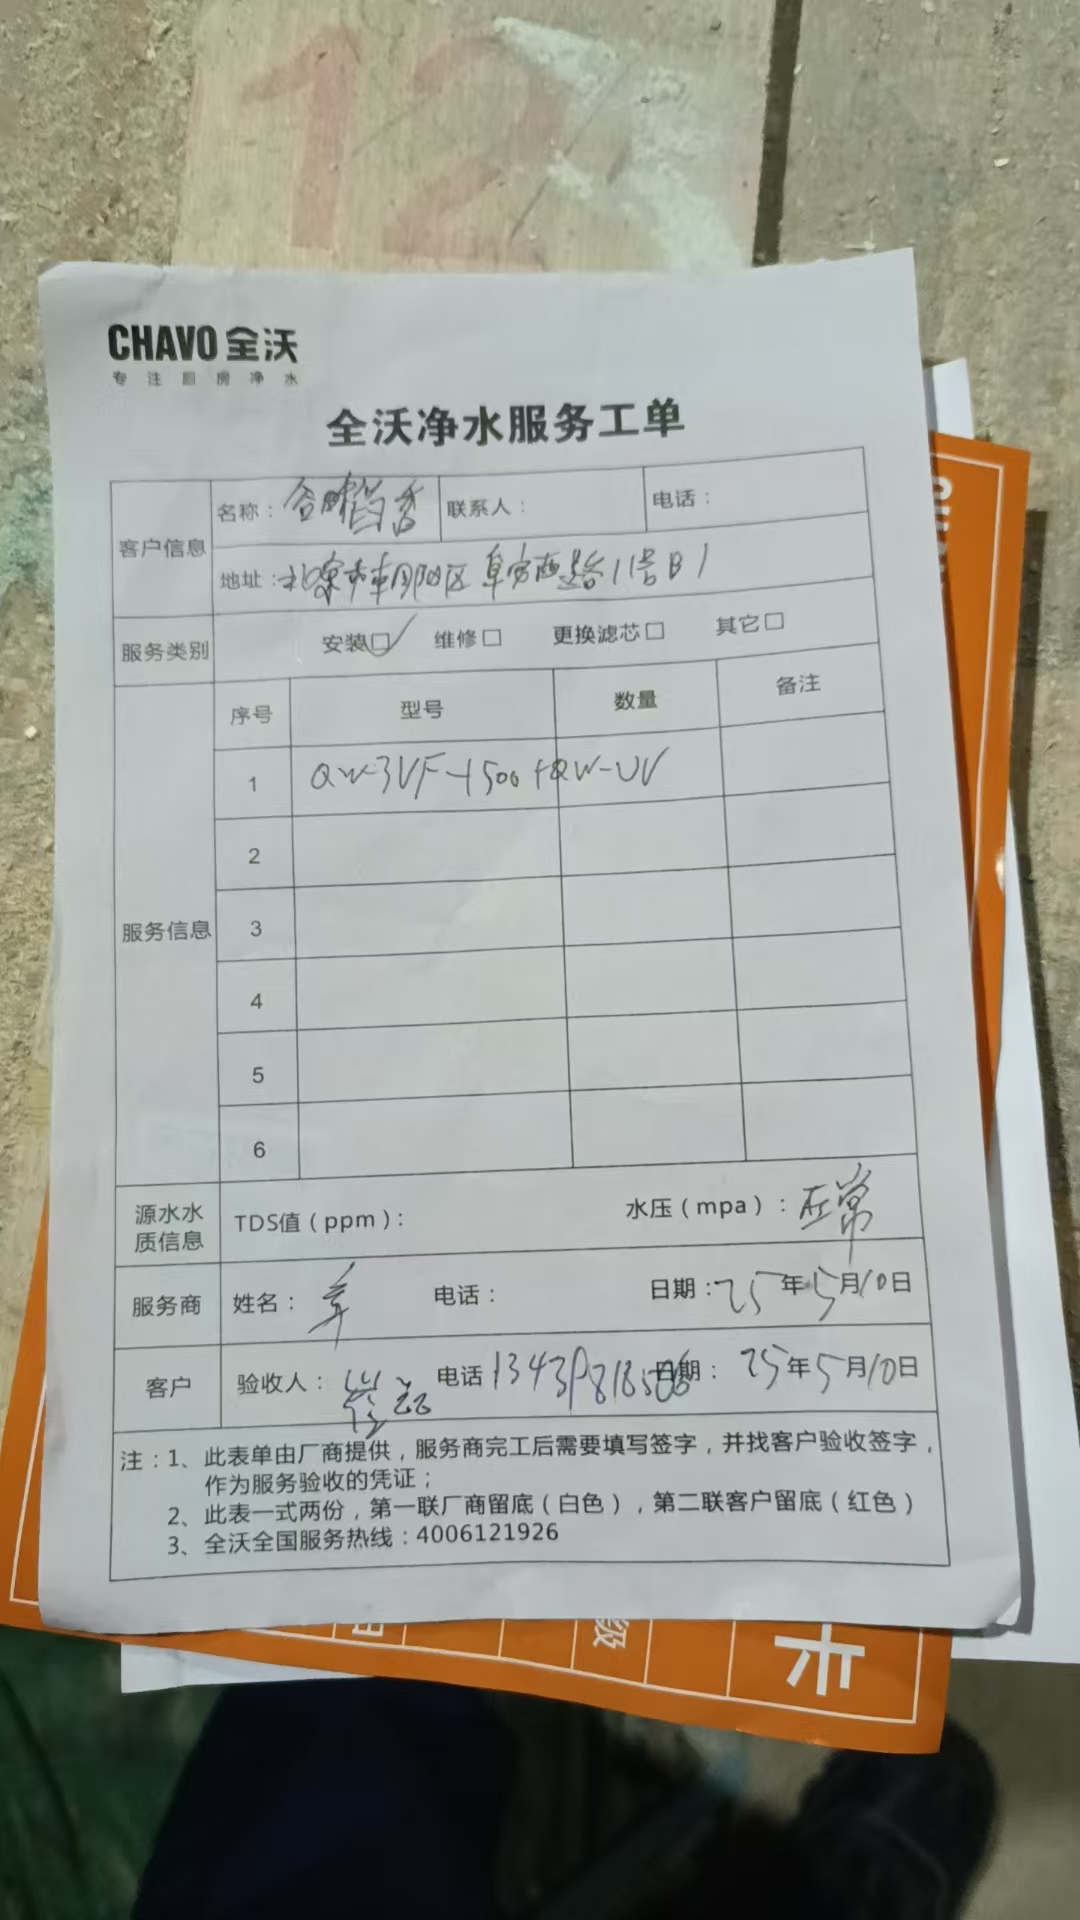 12
CHAVO 全沃
专注厨房净水
全沃净水服务工单
客户信息 名称： 联系人： 电话：
地址：北京市朝阳区阜安西路11号B1
服务类别 安装□✓ 维修□ 更换滤芯□ 其它□
服务信息 序号 型号 数量 备注
1 QW-3VF-1500+QW-UV
2
3
4
5
6
源水水质信息 TDS值（ppm）： 水压（mpa）：正常
服务商 姓名： 电话： 日期：25年5月10日
客户 验收人： 电话 日期：25年5月10日
注：1、此表单由厂商提供，服务商完工后需要填写签字，并找客户验收签字，
作为服务验收的凭证；
2、此表一式两份，第一联厂商留底（白色），第二联客户留底（红色）
3、全沃全国服务热线：4006121926
级
卡